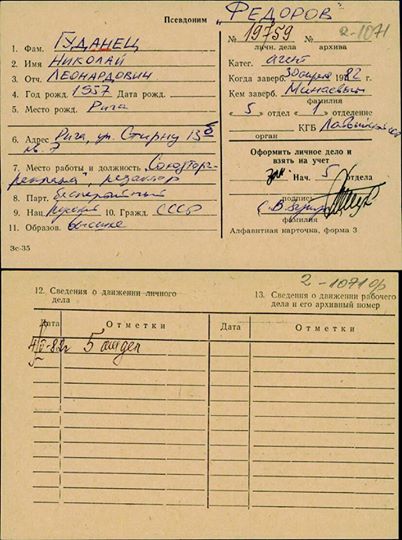 Псевдоним "ФЕДОРОВ"
1. Фам. ГУДАНЕЦ
2. Имя НИКОЛАЙ
3. Отч. ЛЕОНАРДОВИЧ
4. Год рожд. 1957 Дата рожд.
5. Место рожд. Рига
6. Адрес Рига, ул. 13
кв. 7
7. Место работы и должность Союзторг-
реклама, редактор
8. Парт. беспартийный
9. Нац. русский 10. Гражд. СССР
11. Образов. высшее
3с-35
№ 19759 2-1071
№
личн. дела архива
Катег. агент
Когда заверб. 30 1982 г.
Кем заверб.
фамилия
« 5 » отдел « 1 » отделение
КГБ
орган
Оформить личное дело и
взять на учет
зам. Нач. 5 отдела
подпись
фамилия
Алфавитная карточка, форма 3
2-1071
12. Сведения о движении личного
дела
13. Сведения о движении рабочего
дела и его архивный номер
Дата Отметки Дата Отметки
82г 5 отдел